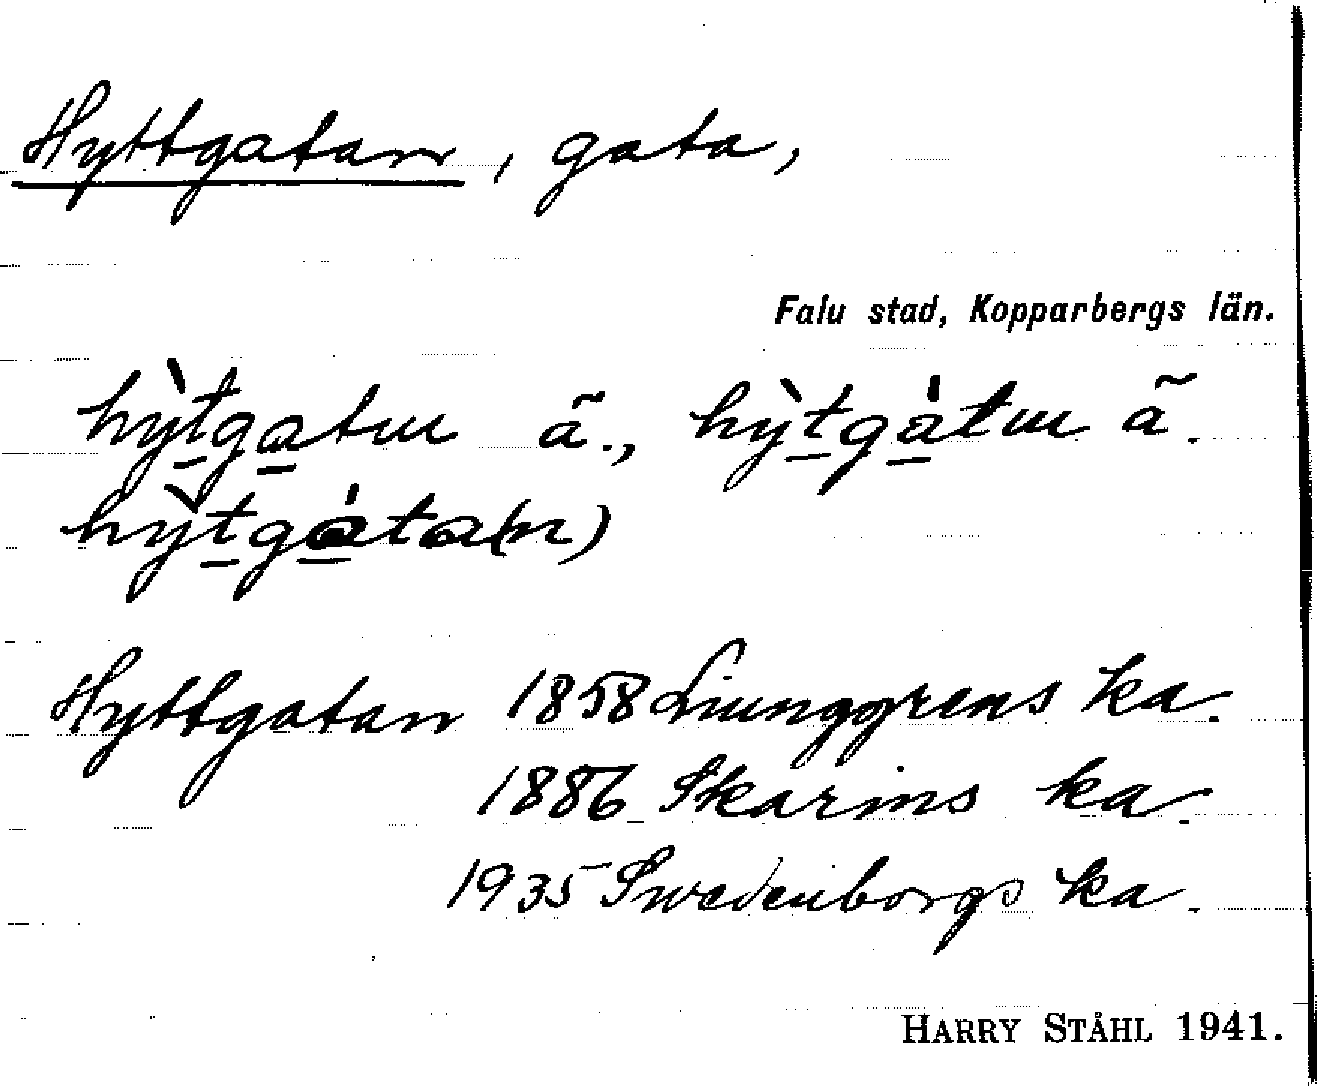 Hyttgatan, gata,
Falu stad, Kopparbergs län.
hỳtgatɯ ã., hỳtgàtɯ ã.
hỳtgáta(n)
Hyttgatan 1858 Liunggrens ka.
1886 Skarins ka.
1935 Swedenborgs ka.
HARRY STÅHL 1941.